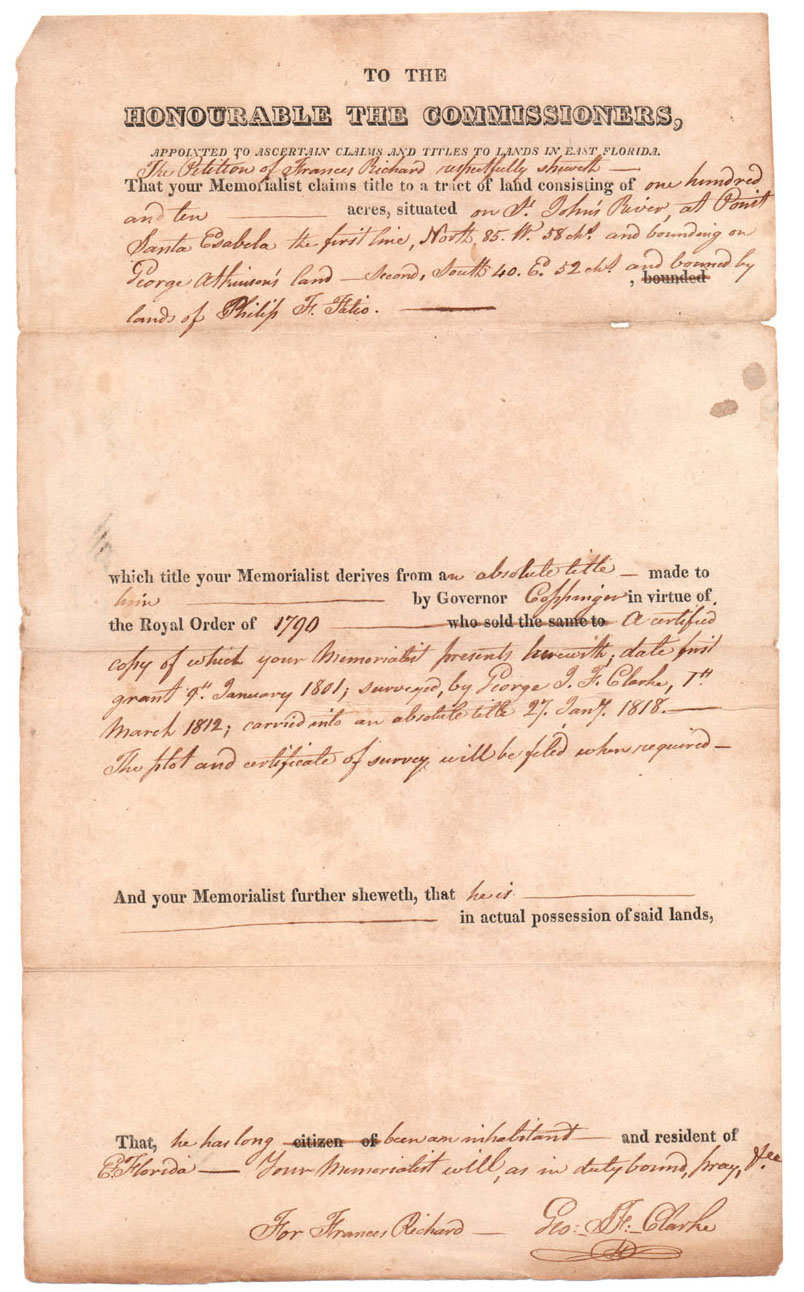 TO THE
HONOURABLE THE COMMISSIONERS,
APPOINTED TO ASCERTAIN CLAIMS AND TITLES TO LANDS IN EAST FLORIDA.
The Petition of Frances Richard respectfully sheweth —
That your Memorialist claims title to a tract of land consisting of one hundred
and ten — acres, situated on St. John's River, at Point
Santa Esabela the first line, North 85. W. 58 chs. and bounding on
George Atkinson's land — second, South 40. Ed. 52 chs. , bounded and bound by
lands of Philip F. Fatio. —
which title your Memorialist derives from an absolute title — made to
him — by Governor Coppinger in virtue of
the Royal Order of 1790 — who sold the same to A certified
copy of which your Memorialist presents herewith; date first
grant 9th. January 1801; surveyed, by George J. F. Clarke, 1st
March 1812; carried into an absolute title 27. Jany. 1818. —
The plot and certificate of survey will be filed when required —
And your Memorialist further sheweth, that he is —
— in actual possession of said lands,
That, he has long citizen of been an inhabitant — and resident of
E. Florida — Your Memorialist will, as in duty bound, pray, &ce
For Frances Richard — Geo: J. F. Clarke